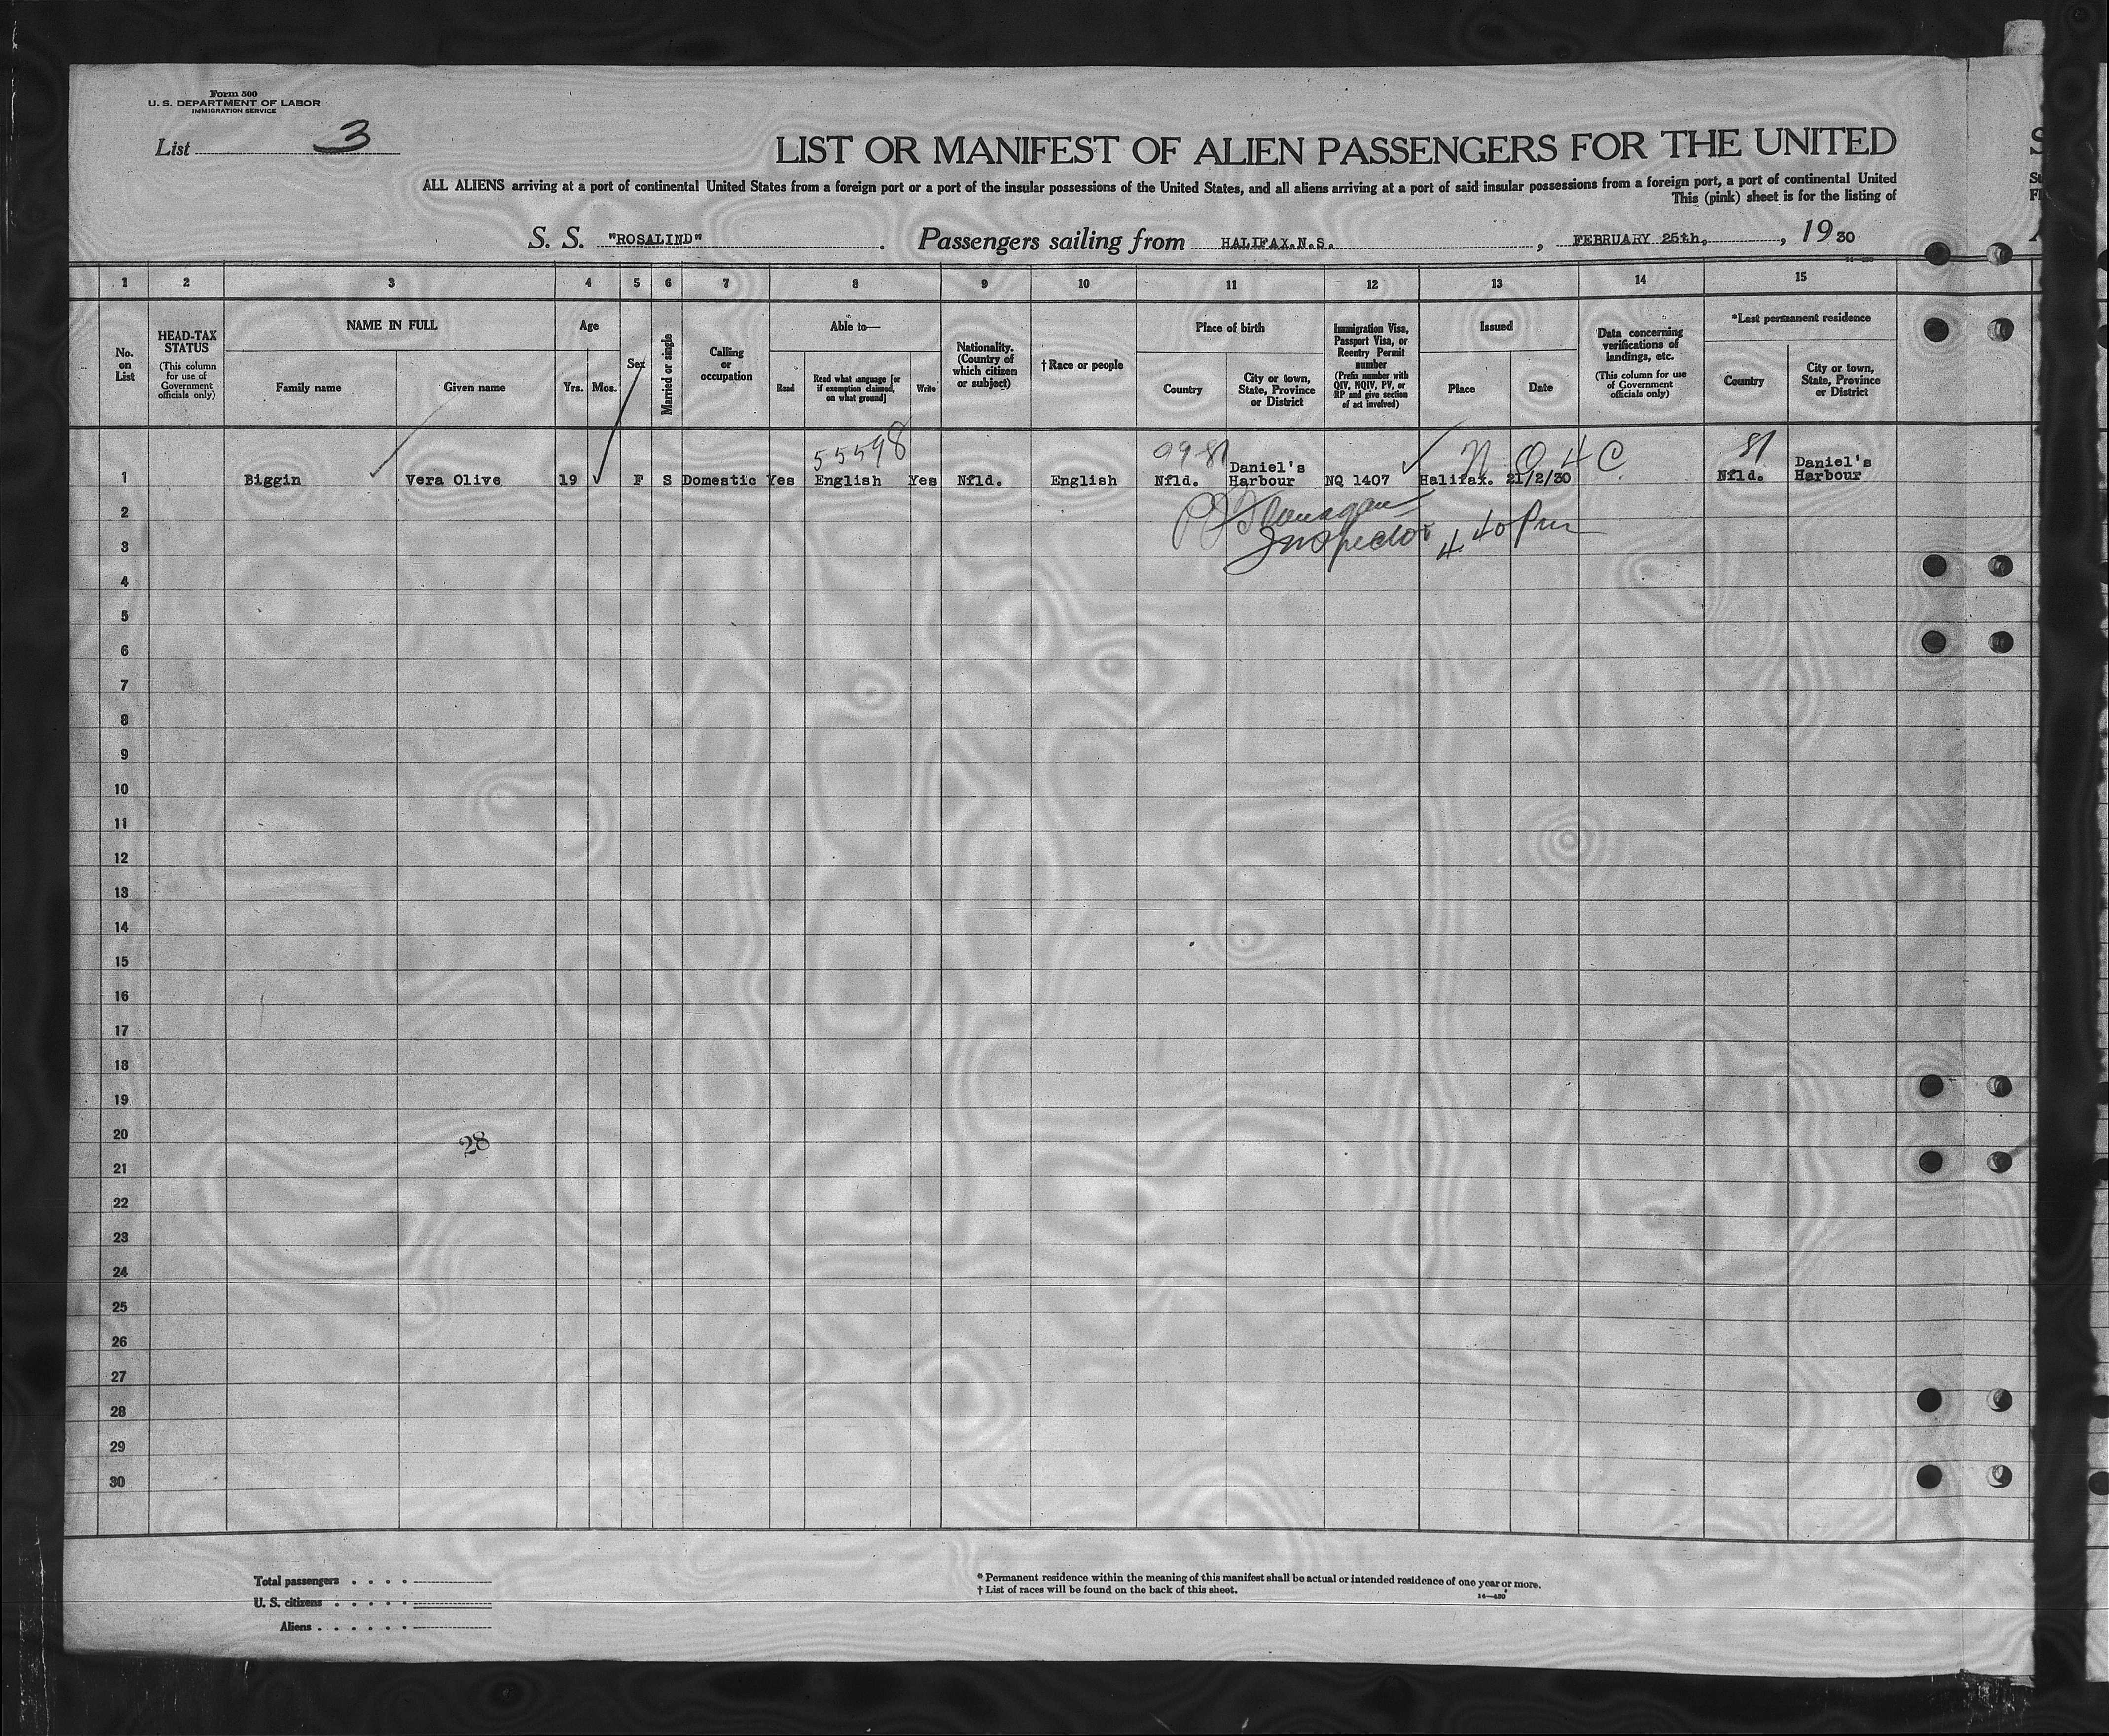 Form 500
U. S. DEPARTMENT OF LABOR
IMMIGRATION SERVICE
List 3
LIST OR MANIFEST OF ALIEN PASSENGERS FOR THE UNITED
ALL ALIENS arriving at a port of continental United States from a foreign port or a port of the insular possessions of the United States, and all aliens arriving at a port of said insular possessions from a foreign port, a port of continental United
This (pink) sheet is for the listing of
S. S. "ROSALIND". Passengers sailing from HALIFAX.N.S., FEBRUARY 25th, , 1930
1 2 3 4 5 6 7 8 9 10 11 12 13 14 15
No. on List
HEAD-TAX STATUS
(This column for use of Government officials only)
NAME IN FULL
Family name
Given name
Age
Yrs. Mos.
Sex
Married or single
Calling or occupation
Able to—
Read
Read what language [or if exemption claimed, on what ground]
Write
Nationality. (Country of which citizen or subject)
†Race or people
Place of birth
Country
City or town, State, Province or District
Immigration Visa, Passport Visa, or Reentry Permit number
(Prefix number with QIV, NQIV, PV, or RP and give section of act involved)
Issued
Place
Date
Data concerning verifications of landings, etc.
(This column for use of Government officials only)
*Last permanent residence
Country
City or town, State, Province or District
55598 9981 N O 4 C 81
1 Biggin Vera Olive 19 F S Domestic Yes English Yes Nfld. English Nfld. Daniel's Harbour NQ 1407 Halifax. 21/2/30 Nfld. Daniel's Harbour
2 Flanagan
3 Inspector 4 40 Pm
4
5
6
7
8
9
10
11
12
13
14
15
16
17
18
19
20
28
21
22
23
24
25
26
27
28
29
30
Total passengers
U. S. citizens
Aliens
* Permanent residence within the meaning of this manifest shall be actual or intended residence of one year or more.
† List of races will be found on the back of this sheet.
14—430